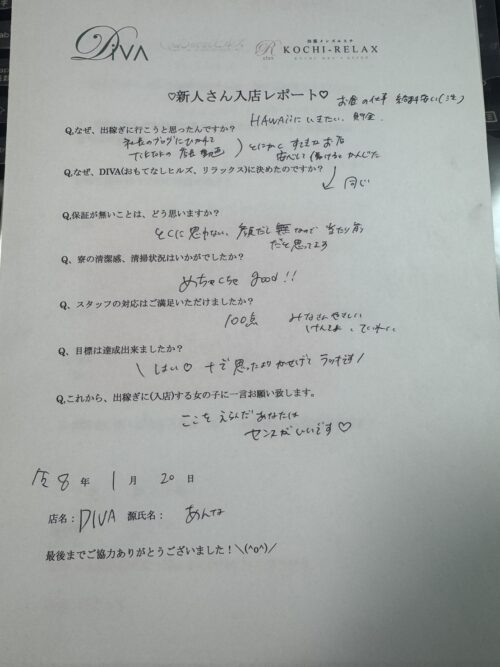 DIVA
高知メンズエステ
KOCHI-RELAX
♡新人さん入店レポート♡
お昼の仕事 給料安い(泣)
Q,なぜ、出稼ぎに行こうと思ったんですか?
HAWAiiにいきたい、貯金
社長のブログにひかれて
TikTokの店長動画
とにかくすてきなお店
安心して働けるとかんじた
Q,なぜ、DIVA(おもてなしヒルズ、リラックス)に決めたのですか?
同じ
Q,保証が無いことは、どう思いますか?
とくに思わない、顔だし無なので 当たり前
だと思ってます
Q、寮の清潔感、清掃状況はいかがでしたか?
めちゃくちゃ good!!
Q、スタッフの対応はご満足いただけましたか?
100点
みなさんやさしい
ていねい
Q、目標は達成出来ましたか?
\ はい♡ 思ったよりかせげて /
Q,これから、出稼ぎに(入店)する女の子に一言お願い致します。
ここをえらんだあなたは
センスがいいです♡
8 年 1 月 20 日
店名:DIVA 源氏名: あんな
最後までご協力ありがとうございました!＼(^o^)／